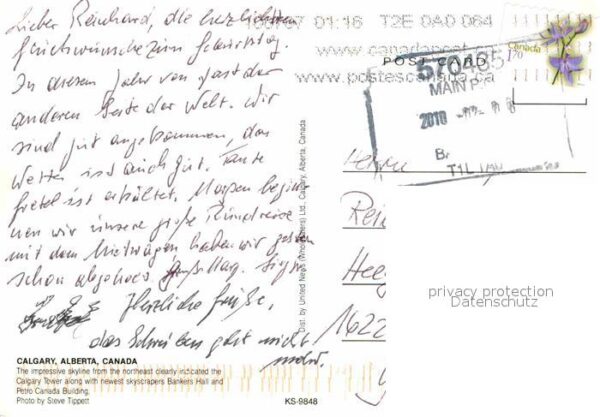 Lieber Reinhard, die herzlichsten
Glückwünsche zum Geburtstag.
In diesem Jahr von fast der
anderen Seite der Welt. Wir
sind gut angekommen, das
Wetter ist auch gut. Tante
Gretel ist erkältet. Morgen begin-
nen wir unsere große Rundreise
mit dem Mietwagen haben wir gestern
schon abgeholt
Herzliche Grüße,
das Schreiben geht nicht
mehr.
CALGARY, ALBERTA, CANADA
The impressive skyline from the northeast clearly indicated the
Calgary Tower along with newest skyscrapers Bankers Hall and
Petro Canada Building.
Photo by Steve Tippett
KS-9848
Dist. by United News (Wholesalers) Ltd., Calgary, Alberta, Canada
01:16 T2E 0A0 064
www.canadapost.ca
www.postescanada.ca
POST CARD
Canada
170
570295
MAIN P
2010
T1L
Herrn
Rei
Hee
1622
privacy protection
Datenschutz